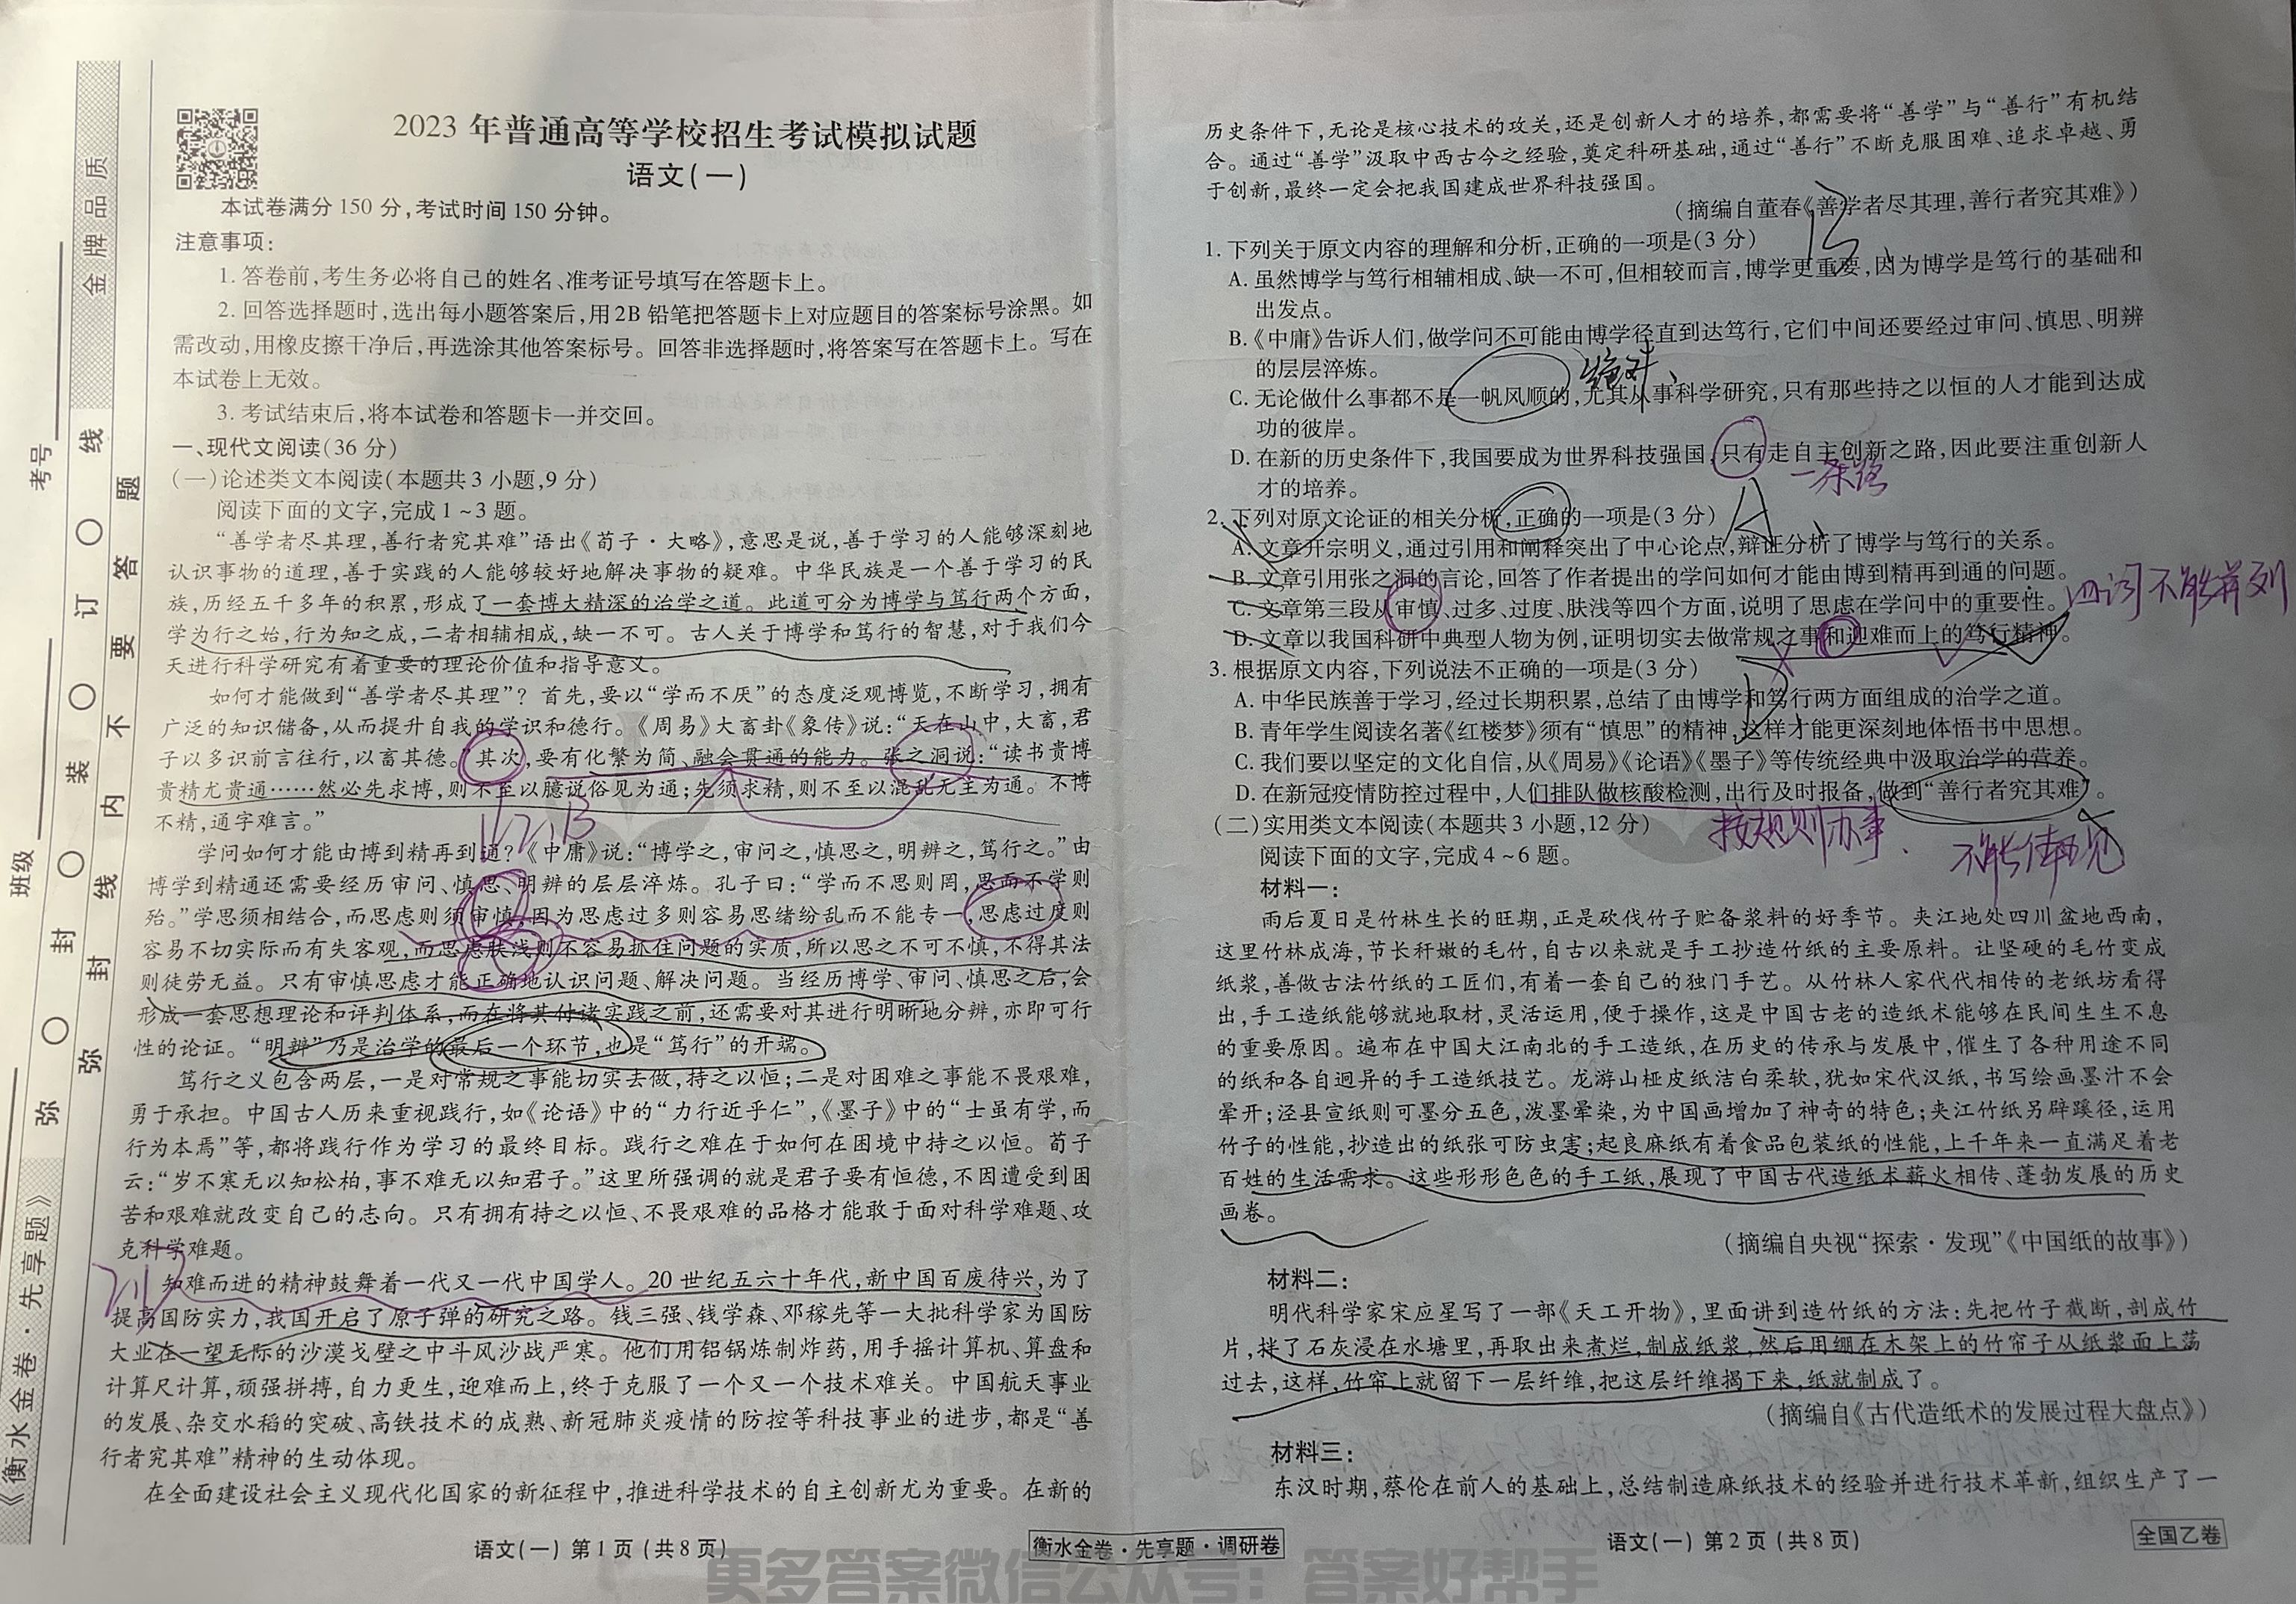 2023 年普通高等学校招生考试模拟试题
语文(一)
本试卷满分 150 分,考试时间 150 分钟。
注意事项:
1. 答卷前,考生务必将自己的姓名、准考证号填写在答题卡上。
2. 回答选择题时,选出每小题答案后,用2B 铅笔把答题卡上对应题目的答案标号涂黑。如
需改动,用橡皮擦干净后,再选涂其他答案标号。回答非选择题时,将答案写在答题卡上。写在
本试卷上无效。
3. 考试结束后,将本试卷和答题卡一并交回。
一、现代文阅读(36 分)
(一)论述类文本阅读(本题共 3 小题,9 分)
阅读下面的文字,完成 1~3 题。
“善学者尽其理,善行者究其难”语出《荀子·大略》,意思是说,善于学习的人能够深刻地
认识事物的道理,善于实践的人能够较好地解决事物的疑难。中华民族是一个善于学习的民
族,历经五千多年的积累,形成了一套博大精深的治学之道。此道可分为博学与笃行两个方面,
学为行之始,行为知之成,二者相辅相成,缺一不可。古人关于博学和笃行的智慧,对于我们今
天进行科学研究有着重要的理论价值和指导意义。
如何才能做到“善学者尽其理”? 首先,要以“学而不厌”的态度泛观博览,不断学习,拥有
广泛的知识储备,从而提升自我的学识和德行。《周易》大畜卦《象传》说:“天在山中,大畜,君
子以多识前言往行,以畜其德。”其次,要有化繁为简、融会贯通的能力。张之洞说:“读书贵博
贵精尤贵通……然必先求博,则不至以臆说俗见为通;先须求精,则不至以混乱无主为通。不博
不精,通字难言。”
学问如何才能由博到精再到通?《中庸》说:“博学之,审问之,慎思之,明辨之,笃行之。”由
博学到精通还需要经历审问、慎思、明辨的层层淬炼。孔子曰:“学而不思则罔,思而不学则
殆。”学思须相结合,而思虑则须审慎,因为思虑过多则容易思绪纷乱而不能专一,思虑过度则
容易不切实际而有失客观,而思虑肤浅则不容易抓住问题的实质,所以思之不可不慎,不得其法
则徒劳无益。只有审慎思虑才能正确地认识问题、解决问题。当经历博学、审问、慎思之后,会
形成一套思想理论和评判体系,而在将其付诸实践之前,还需要对其进行明晰地分辨,亦即可行
性的论证。“明辨”乃是治学的最后一个环节,也是“笃行”的开端。
笃行之义包含两层,一是对常规之事能切实去做,持之以恒;二是对困难之事能不畏艰难,
勇于承担。中国古人历来重视践行,如《论语》中的“力行近乎仁”,《墨子》中的“士虽有学,而
行为本焉”等,都将践行作为学习的最终目标。践行之难在于如何在困境中持之以恒。荀子
云:“岁不寒无以知松柏,事不难无以知君子。”这里所强调的就是君子要有恒德,不因遭受到困
苦和艰难就改变自己的志向。只有拥有持之以恒、不畏艰难的品格才能敢于面对科学难题、攻
克科学难题。
知难而进的精神鼓舞着一代又一代中国学人。20 世纪五六十年代,新中国百废待兴,为了
提高国防实力,我国开启了原子弹的研究之路。钱三强、钱学森、邓稼先等一大批科学家为国防
大业在一望无际的沙漠戈壁之中斗风沙战严寒。他们用铝锅炼制炸药,用手摇计算机、算盘和
计算尺计算,顽强拼搏,自力更生,迎难而上,终于克服了一个又一个技术难关。中国航天事业
的发展、杂交水稻的突破、高铁技术的成熟、新冠肺炎疫情的防控等科技事业的进步,都是“善
行者究其难”精神的生动体现。
在全面建设社会主义现代化国家的新征程中,推进科学技术的自主创新尤为重要。在新的
语文(一) 第 1 页 (共 8 页)
历史条件下,无论是核心技术的攻关,还是创新人才的培养,都需要将“善学”与“善行”有机结
合。通过“善学”汲取中西古今之经验,奠定科研基础,通过“善行”不断克服困难、追求卓越、勇
于创新,最终一定会把我国建成世界科技强国。
(摘编自董春《善学者尽其理,善行者究其难》)
1. 下列关于原文内容的理解和分析,正确的一项是(3 分)
B
A. 虽然博学与笃行相辅相成、缺一不可,但相较而言,博学更重要,因为博学是笃行的基础和
出发点。
B.《中庸》告诉人们,做学问不可能由博学径直到达笃行,它们中间还要经过审问、慎思、明辨
的层层淬炼。
绝对、
C. 无论做什么事都不是一帆风顺的,尤其从事科学研究,只有那些持之以恒的人才能到达成
功的彼岸。
D. 在新的历史条件下,我国要成为世界科技强国,只有走自主创新之路,因此要注重创新人
才的培养。
一条路
2. 下列对原文论证的相关分析,正确的一项是(3 分)
A
A. 文章开宗明义,通过引用和阐释突出了中心论点,辩证分析了博学与笃行的关系。
B. 文章引用张之洞的言论,回答了作者提出的学问如何才能由博到精再到通的问题。
C. 文章第三段从审慎、过多、过度、肤浅等四个方面,说明了思虑在学问中的重要性。
四词不能并列
D. 文章以我国科研中典型人物为例,证明切实去做常规之事和迎难而上的笃行精神。
3. 根据原文内容,下列说法不正确的一项是(3 分)
D
A. 中华民族善于学习,经过长期积累,总结了由博学和笃行两方面组成的治学之道。
B. 青年学生阅读名著《红楼梦》须有“慎思”的精神,这样才能更深刻地体悟书中思想。
C. 我们要以坚定的文化自信,从《周易》《论语》《墨子》等传统经典中汲取治学的营养。
D. 在新冠疫情防控过程中,人们排队做核酸检测,出行及时报备,做到“善行者究其难”。
按规则办事、
不能体现
(二)实用类文本阅读(本题共 3 小题,12 分)
阅读下面的文字,完成 4~6 题。
材料一:
雨后夏日是竹林生长的旺期,正是砍伐竹子贮备浆料的好季节。夹江地处四川盆地西南,
这里竹林成海,节长秆嫩的毛竹,自古以来就是手工抄造竹纸的主要原料。让坚硬的毛竹变成
纸浆,善做古法竹纸的工匠们,有着一套自己的独门手艺。从竹林人家代代相传的老纸坊看得
出,手工造纸能够就地取材,灵活运用,便于操作,这是中国古老的造纸术能够在民间生生不息
的重要原因。遍布在中国大江南北的手工造纸,在历史的传承与发展中,催生了各种用途不同
的纸和各自迥异的手工造纸技艺。龙游山桠皮纸洁白柔软,犹如宋代汉纸,书写绘画墨汁不会
晕开;泾县宣纸则可墨分五色,泼墨晕染,为中国画增加了神奇的特色;夹江竹纸另辟蹊径,运用
竹子的性能,抄造出的纸张可防虫害;起良麻纸有着食品包装纸的性能,上千年来一直满足着老
百姓的生活需求。这些形形色色的手工纸,展现了中国古代造纸术薪火相传、蓬勃发展的历史
画卷。
(摘编自央视“探索·发现”《中国纸的故事》)
材料二:
明代科学家宋应星写了一部《天工开物》,里面讲到造竹纸的方法:先把竹子截断,剖成竹
片,拌了石灰浸在水塘里,再取出来煮烂,制成纸浆,然后用绷在木架上的竹帘子从纸浆面上荡
过去,这样,竹帘上就留下一层纤维,把这层纤维揭下来,纸就制成了。
(摘编自《古代造纸术的发展过程大盘点》)
材料三:
东汉时期,蔡伦在前人的基础上,总结制造麻纸技术的经验并进行技术革新,组织生产了一
语文(一) 第 2 页 (共 8 页)
衡水金卷·先享题·调研卷
全国乙卷
更多答案微信公众号:答案好帮手
《衡水金卷·先享题》
金牌品质
考号
班级
弥 封 装 订 线
弥 封 线 内 不 要 答 题